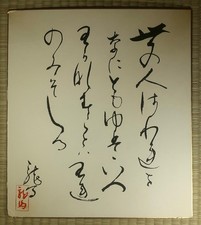 世の人はわれを
なにともゆはゝいへ
わかなすことはわれ
のみそしる
龍馬